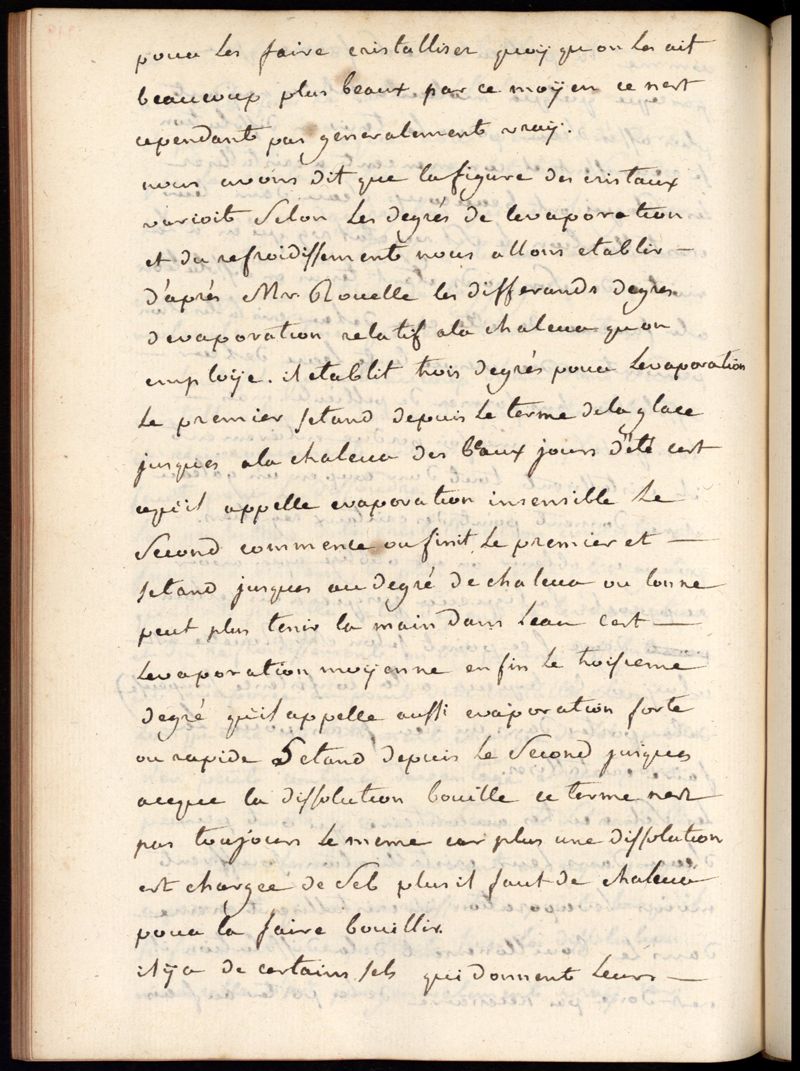 pour les faire cristalliser quoÿ qu'on les ait
beaucoup plus beaux par ce moÿen ce nest
cependant pas generalement vraÿ.
nous avons dit que la figure des cristaux
varioit selon les degrés de levaporation
et du refroidissement nous allons etablir —
d'aprés Mr Rouelle les differands degres
devaporation relatif ala chaleur quon
emploÿe. il etablit trois degrés pour levaporation
Le premier setand depuis Le terme dela glace
jusques ala chaleur des beaux jours d'été cest
cequil appelle evaporation insensible Le
second commence ou finit Le premier et —
setand jusques au degré de chaleur ou lonne
peut plus tenir la main dans Leau cest —
Levaporation moÿenne enfin Le troisieme
degré quil appelle aussi evaporation forte
ou rapide Setand depuis Le Second jusques
aceque la dissolution bouille ce terme nest
pas toujours Le meme car plus une dissolution
est chargee de Sels plus il faut de chaleur
pour la faire bouillir.
il ÿ a de certains sels qui donnent Leurs —